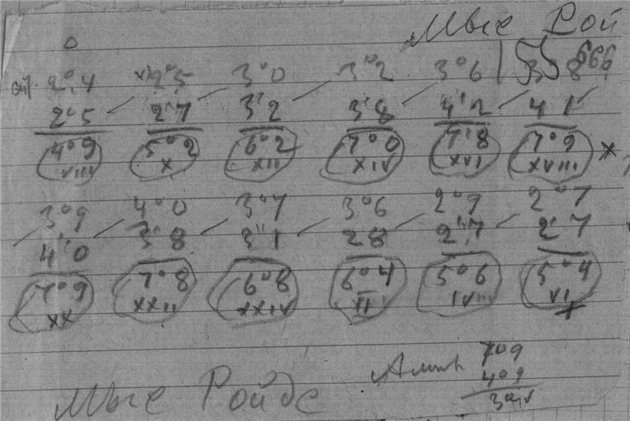 Мые Рой
0
2°4 2°5 3°0 3°2 3°6 3 8 666
2°5 2'7 3'2 3'8 4'2 4 1
4°9 5°2 6°2 7°0 7'8 7°9
VIII X XII XIV XVI XVIII *
3°9 4°0 3°7 3°6 2°9 2°7
4'0 3'8 3'1 28 2'7 2'7
7°9 7°8 6°8 6°4 5°6 5°4
XX XXII XXIV II IV VI
709
409
Мые Ройдс